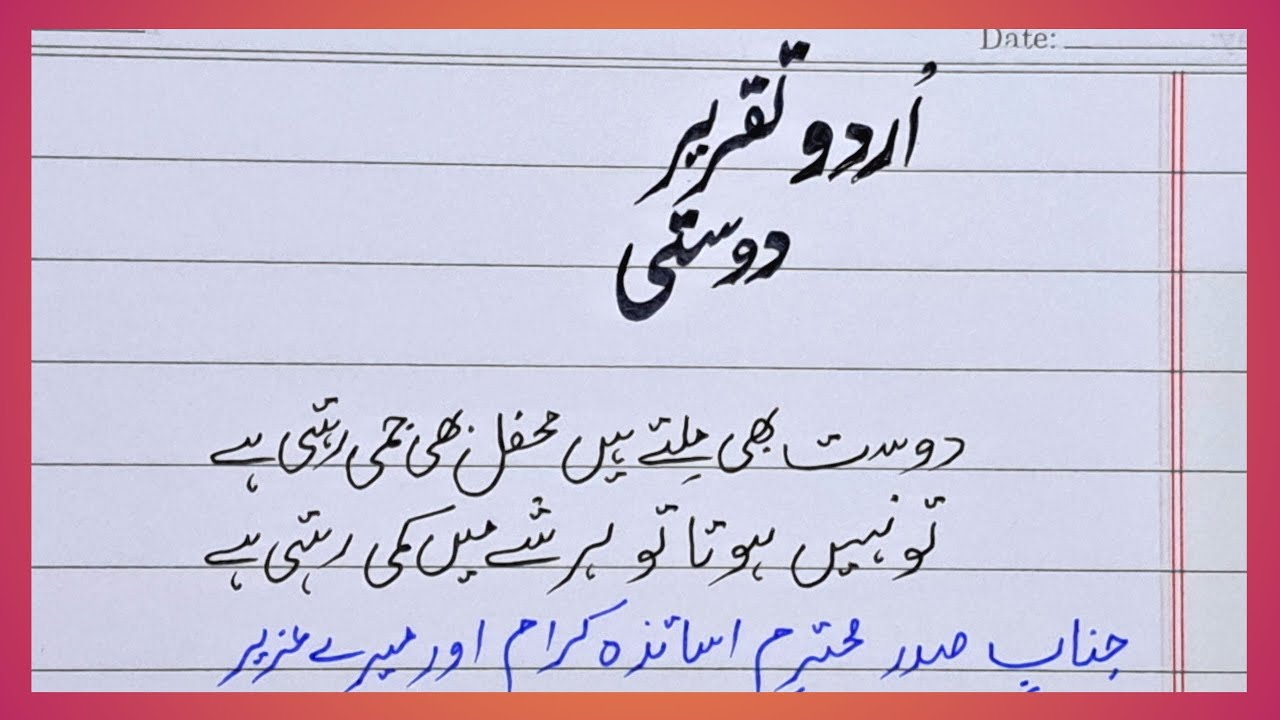 Date:
اُردو تقریر
دوستی
دوست بھی مِلتے ہیں محفل بھی جمی رہتی ہے
تو نہیں ہوتا تو ہر شے میں کمی رہتی ہے
جنابِ صدر محترم اساتذہ کرام اور میرے عزیز